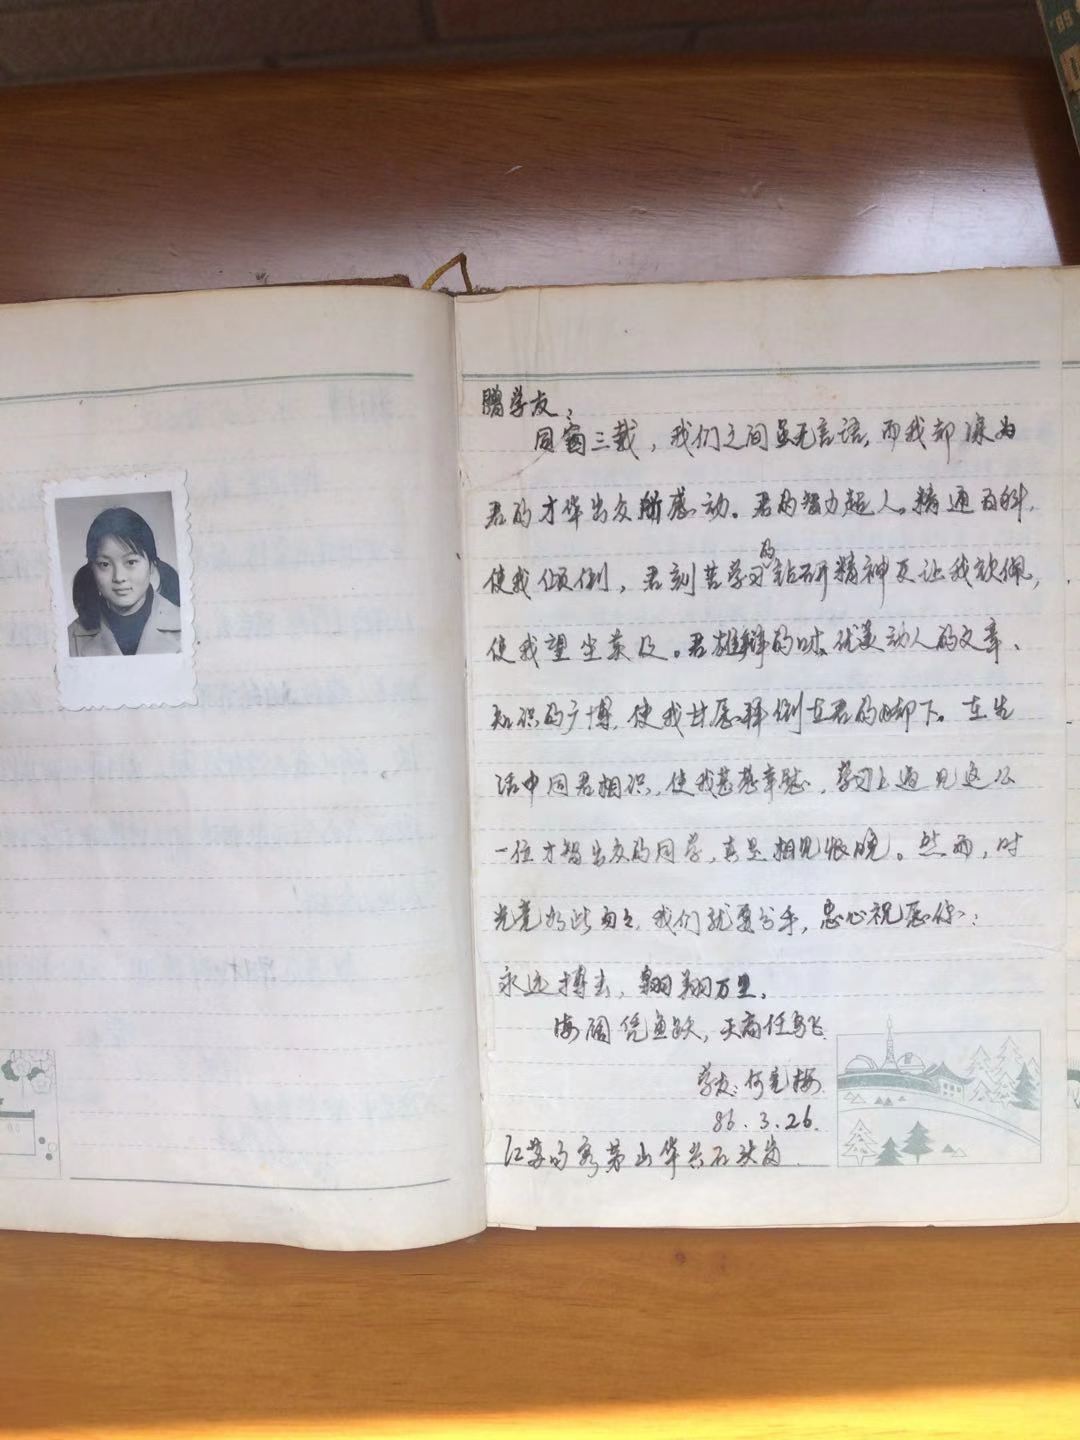 赠学友:
同窗三载,我们之间虽无言语,而我却深为
君的才华出众所感动。君的智力超人。精通百科,
使我倾倒,君刻苦学习的钻研精神更让我钦佩,
使我望尘莫及。君雄辩的口才、优美动人的文章、
知识的广博,使我甘愿拜倒在君的脚下。在生
活中同君相识,使我甚感幸慰,学习上遇见这么
一位才智出众的同学,真是相见恨晚。然而,时
光竟如此匆匆,我们就要分手,忠心祝愿你:
永远搏击,翱翔万里,
海阔凭鱼跃,天高任鸟飞.
学友:何 梅
86.3.26.
江苏句容茅山华